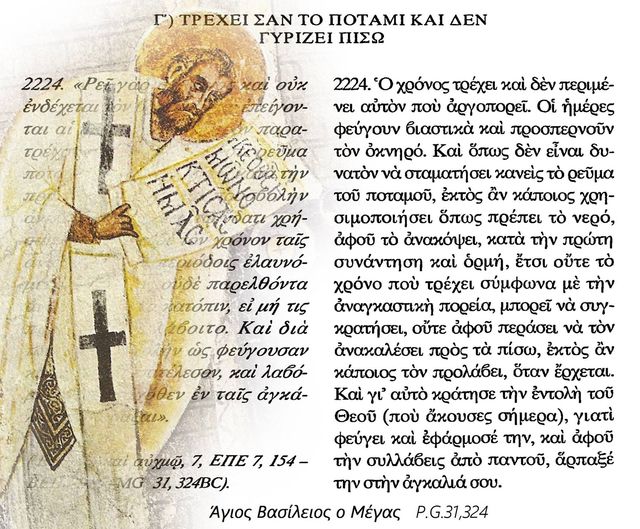 Γ΄) ΤΡΕΧΕΙ ΣΑΝ ΤΟ ΠΟΤΑΜΙ ΚΑΙ ΔΕΝ
ΓΥΡΙΖΕΙ ΠΙΣΩ
2224. «Ρεῖ γὰρ καὶ οὐκ
ἐνδέχεται τὸν ἐπείγον-
ται αἱ παρα-
τρέχε ρεῦμα
ποτα τὴν
πρ βολὴν
δατι χρή-
ν χρόνον ταῖς
εριόδοις ἐλαυνό-
οὐδὲ παρελθόντα
κατόπιν, εἰ μή τις
λάβοιτο. Καὶ διὰ
ὴν ὡς φεύγουσαν
τέλεσον, καὶ λαβό-
θεν ἐν ταῖς ἀγκά-
αι».
αὶ αὐχμῷ, 7, ΕΠΕ 7, 154 –
MG 31, 324BC).
ΚΤΙΣΑ
ΗΜΑΣ
2224. Ὁ χρόνος τρέχει καὶ δὲν περιμέ-
νει αὐτὸν ποὺ ἀργοπορεῖ. Οἱ ἡμέρες
φεύγουν βιαστικὰ καὶ προσπερνοῦν
τὸν ὀκνηρό. Καὶ ὅπως δὲν εἶναι δυ-
νατὸν νὰ σταματήσει κανεὶς τὸ ρεῦμα
τοῦ ποταμοῦ, ἐκτὸς ἂν κάποιος χρη-
σιμοποιήσει ὅπως πρέπει τὸ νερό,
ἀφοῦ τὸ ἀνακόψει, κατὰ τὴν πρώτη
συνάντηση καὶ ὁρμή, ἔτσι οὔτε τὸ
χρόνο ποὺ τρέχει σύμφωνα μὲ τὴν
ἀναγκαστικὴ πορεία, μπορεῖ νὰ συγ-
κρατήσει, οὔτε ἀφοῦ περάσει νὰ τὸν
ἀνακαλέσει πρὸς τὰ πίσω, ἐκτὸς ἂν
κάποιος τὸν προλάβει, ὅταν ἔρχεται.
Καὶ γι' αὐτὸ κράτησε τὴν ἐντολὴ τοῦ
Θεοῦ (ποὺ ἄκουσες σήμερα), γιατὶ
φεύγει καὶ ἐφάρμοσέ την, καὶ ἀφοῦ
τὴν συλλάβεις ἀπὸ παντοῦ, ἅρπαξέ
την στὴν ἀγκαλιά σου.
Ἅγιος Βασίλειος ο Μέγας P.G.31,324